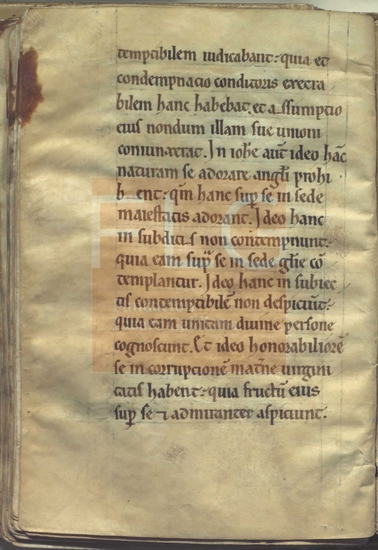 temptibilem iudicabant: quia et
condempnacio conditoris execra
bilem hanc habebat, et assumptio
eius nondum illam sue unioni
coniunxerat. In ioħe aut̄ ideo hāc
naturam se adorare angłi prohi
b ent: qm̄ hanc sup̄ se in sede
maiestatis adorant. Ideo hanc
in subditis non contempnunt:
quia eam sup̄ se in sede głie cō
templantur. Ideo hanc in subiec
tis contemptibilē non despiciūt:
quia eam unitam diuine persone
cognoscunt. Et ideo honorabiliorē
se incorruptionē mat̄ne uirgini
tatis habent: quia fructū eius
sup̄ se ⁊ admiranter aspiciunt.